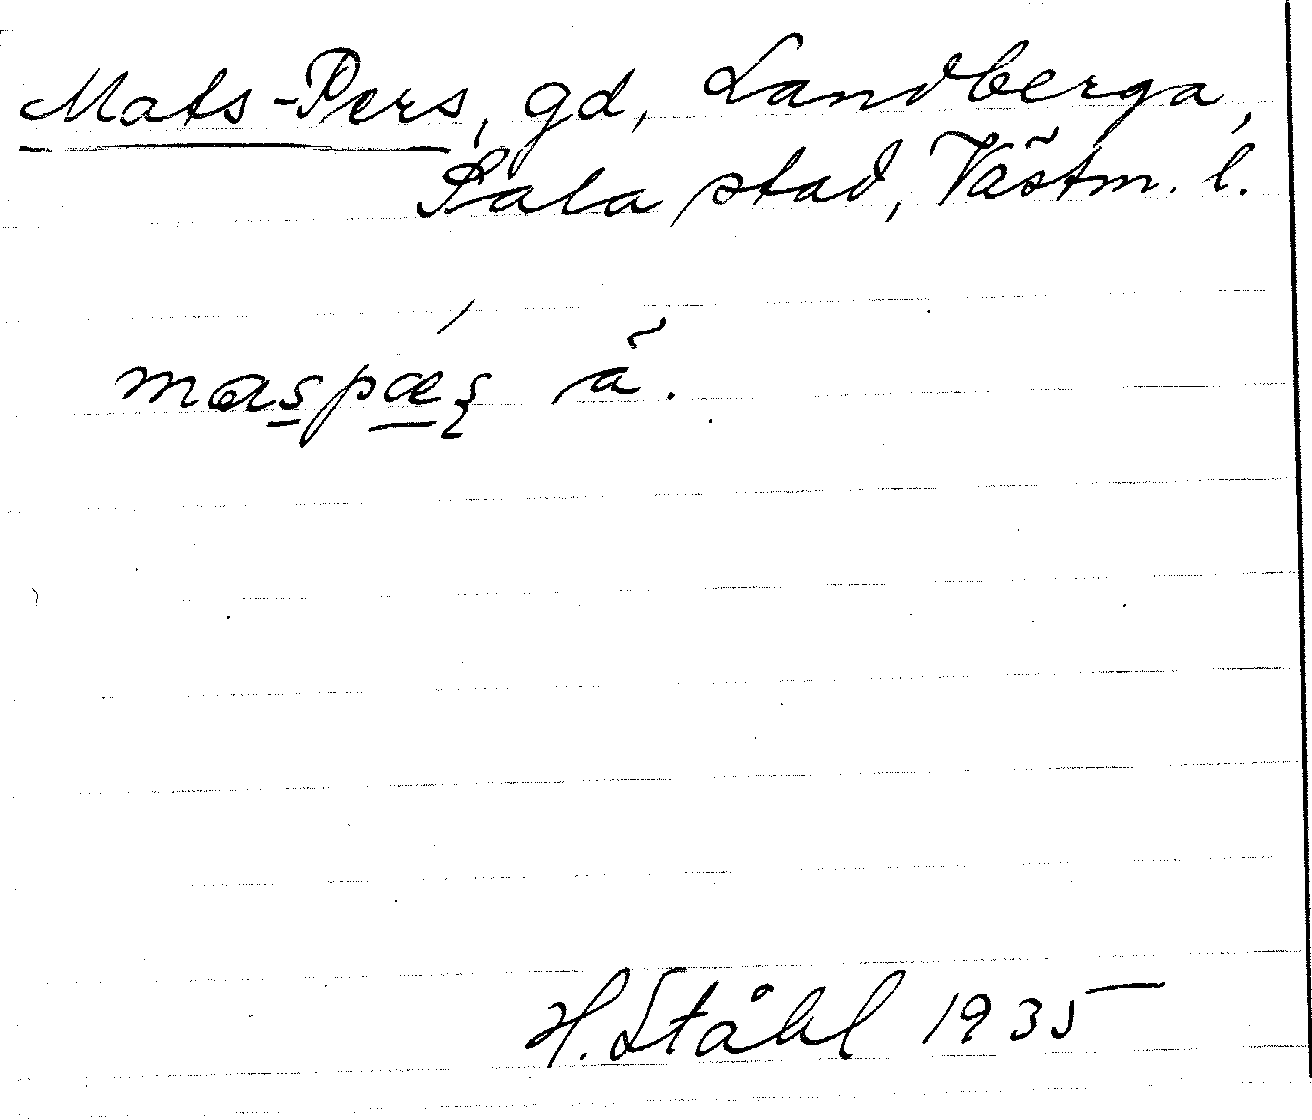 Mats-Pers, gd, Landberga,
Sala stad, Västm. l.
maspæ̀ʂ ä.
H. Ståhl 1935